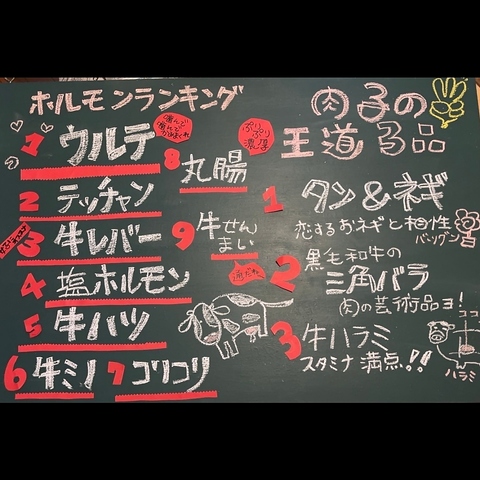 ホルモンランキング
1 ウルテ
2 テッチャン
3 牛レバー
4 塩ホルモン
5 牛ハツ
6 牛ミノ
7 コリコリ
8 丸腸
ぷりぷり
濃厚
9 牛せん
まい
肉子の
王道3品
1 タン&ネギ
恋するおネギと相性
バツグン
2 黒毛和牛の
三角バラ
肉の芸術品ヨ!
ココ
3 牛ハラミ
スタミナ満点!!
ハラミ